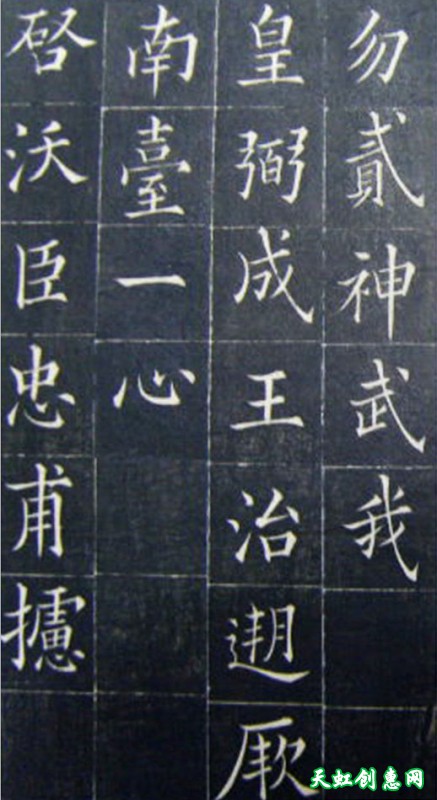 勿貳神武我
皇弼成王治遡厥
南臺一心
啓沃臣忠甫攄
天虹创惠网